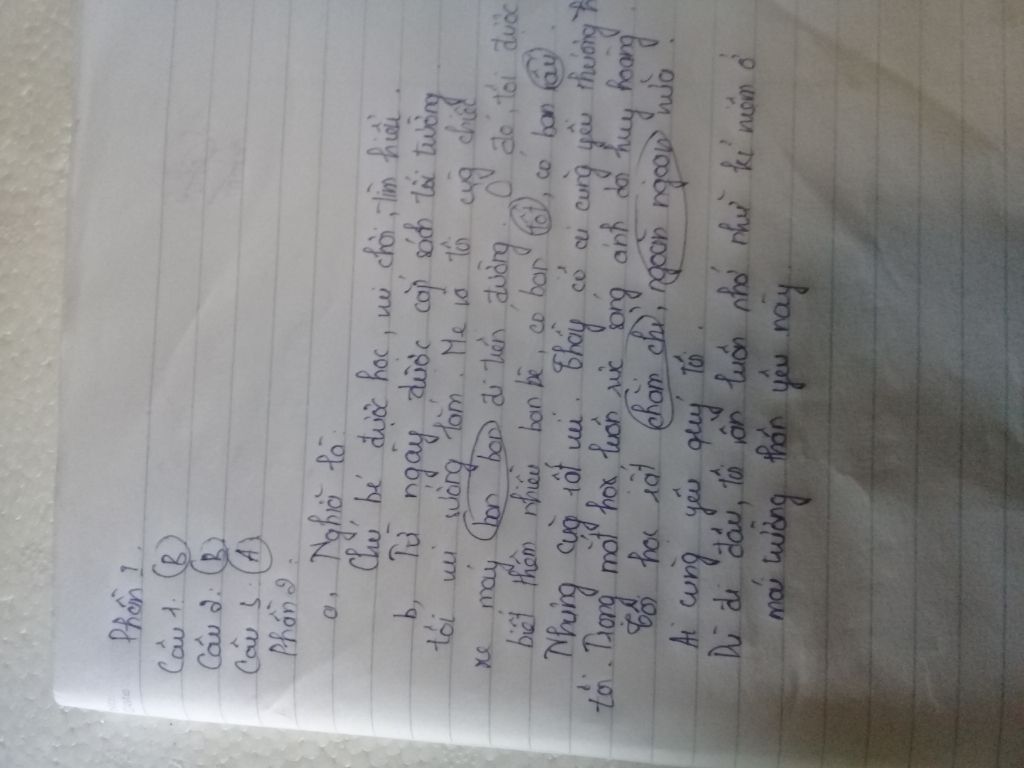 Phần 1.
Câu 1: B
Câu 2: B
Câu 3: A
Phần 2:
a, Nghĩa là:
Chú bé được học, vui chơi, tìm hiểu.
b, Từ ngày được cắp sách tới trường
tôi vui sướng lắm. Mẹ tôi cùng chiếc
xe máy bon bon đi trên đường. Ở đó, tôi được
biết thêm nhiều bạn bè, có bạn tốt, có bạn lấy
Những cũng rất vui. Thầy cô ai cũng yêu thương
tôi. Trong mắt học luôn rực sáng ánh đỏ huy hoàng
Tôi học rất chăm chỉ, ngoan ngoãn nữa.
Ai cũng yêu quý tôi.
Dù đi đâu, tôi vẫn luôn nhớ như kỉ niệm ở
mái trường thân yêu này.